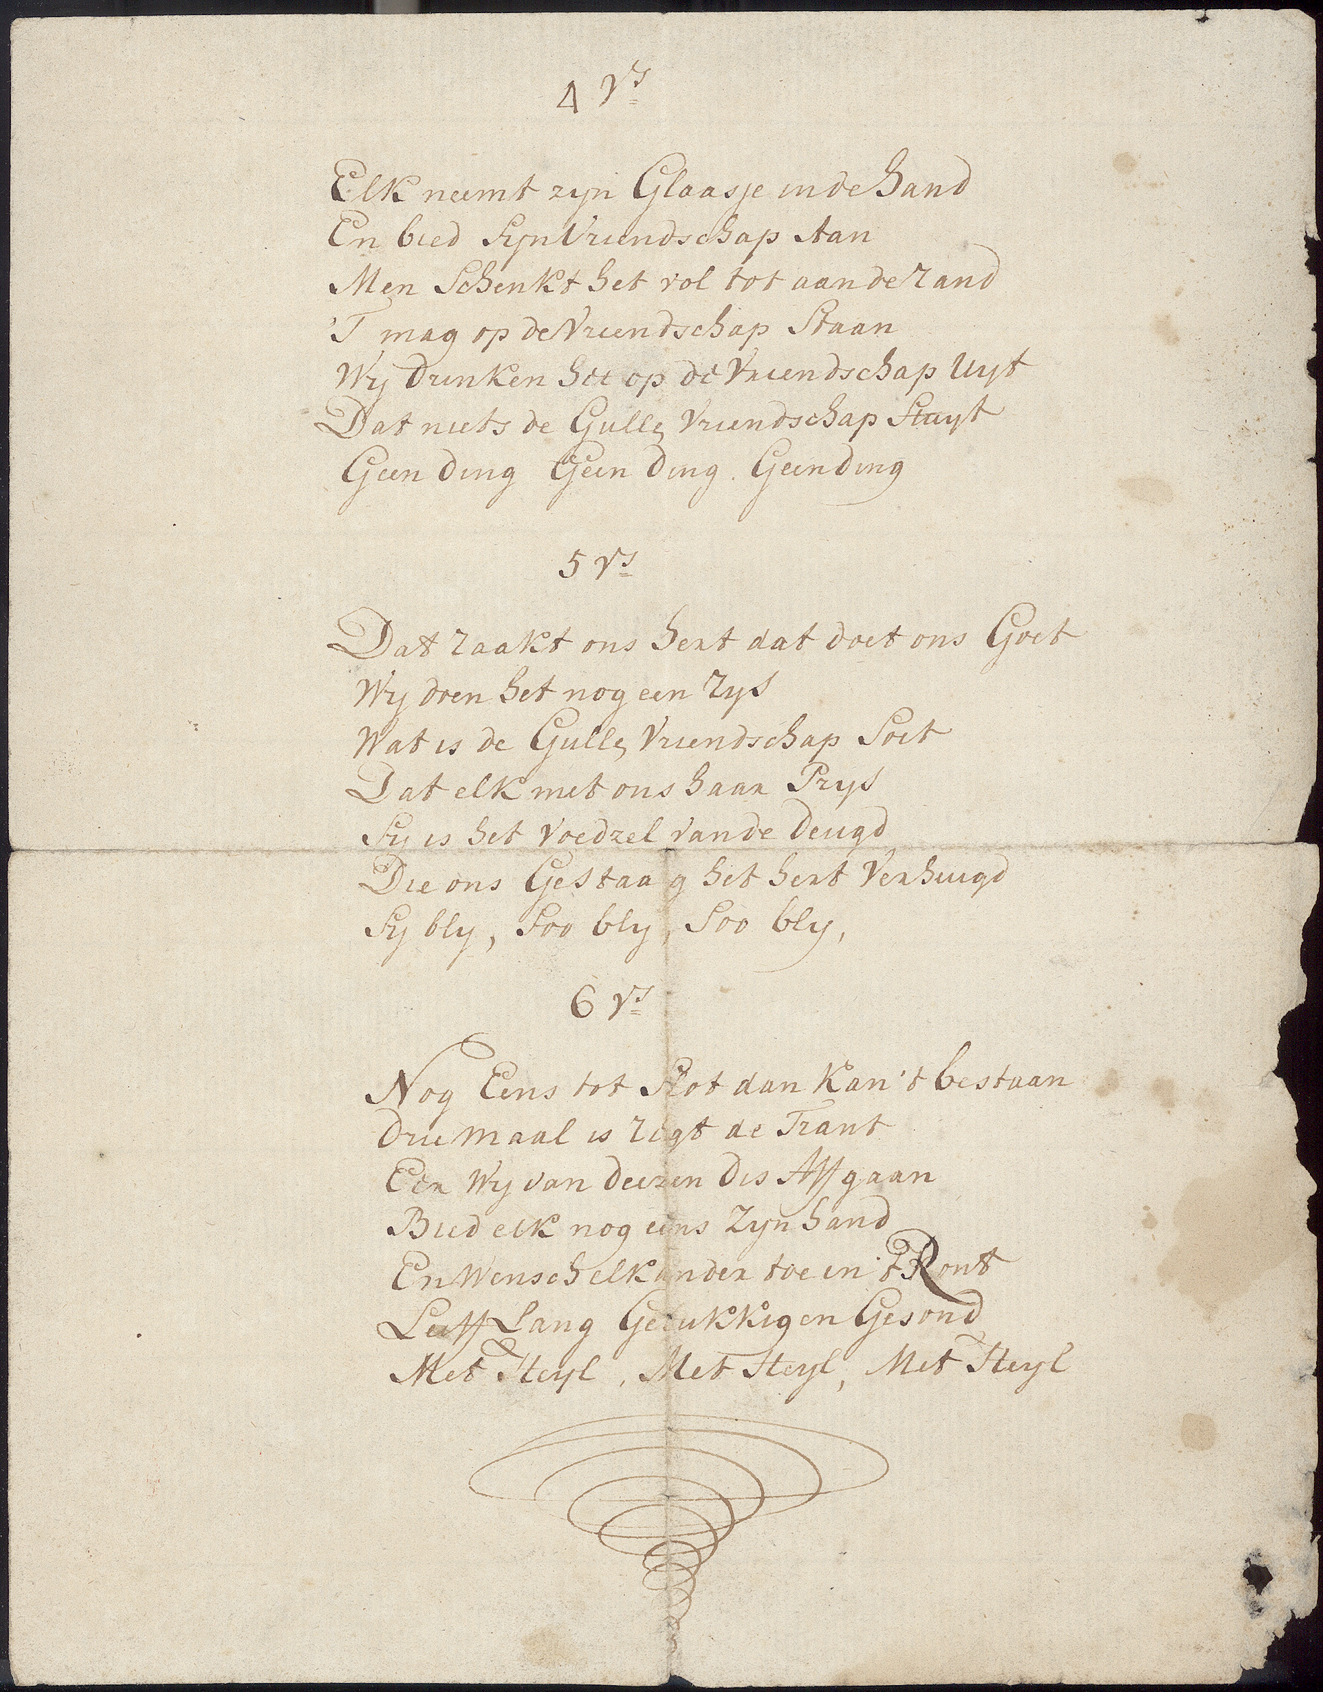 4 vs
Elk neemt zyn Glaasje in de hand
En bied Syn Vriendschap Aan
Men Schenkt het vol tot aan de rand
'T mag op de Vriendschap Staan
Wy Drinken het op de Vriendschap Uyt
Dat niets de Gulle Vriendschap Stuyt
Geen Ding Geen Ding. Geen Ding
5 vs
Dat raakt ons hert dat doet ons Goet
Wy doen het nog een rys
Wat is de Gulle Vriendschap Soet
Dat elk met ons haar Prys
Sy is het Voedzel van de Deugd
Die ons Gestaag het hert Verheugd
Sy bly, Soo bly, Soo bly,
6 vs
Nog Eens tot Slot dan kan 't bestaan
Driemaal is regt de Trant
Eer Wy van deezen Dis Affgaan
Bied elk nog eens Zyn hand
En Wensch elkander toe in 't Ront
Leeff Lang Gelukkig en Gesond
Met Heyl, Met Heyl, Met Heyl